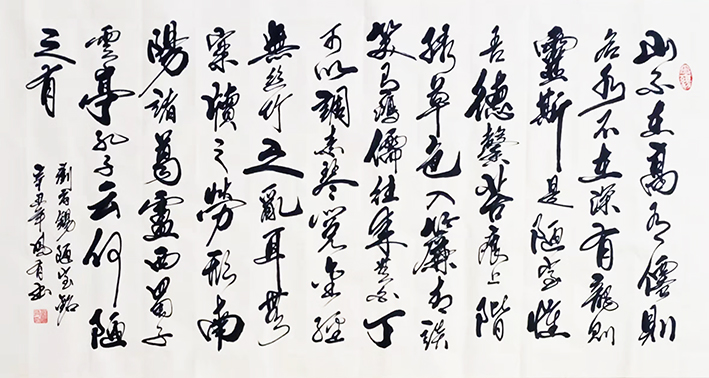 山不在高有僊則
名水不在深有龍則
靈斯是陋室惟
吾德馨苔痕上階
綠草色入簾青談
笑有鴻儒往來無白丁
可以調素琴閱金經
無絲竹之亂耳無
案牘之勞形南
陽諸葛廬西蜀子
雲亭孔子云何陋
之有
劉禹錫陋室銘
辛丑年